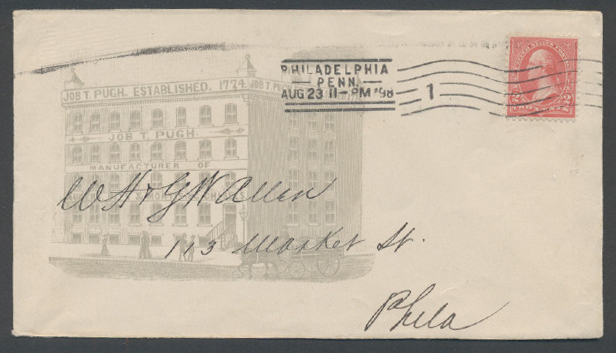 PHILADELPHIA
PENN.
AUG 23 11-PM '98
1
JOB T. PUGH. ESTABLISHED. 1774. JOB T. PU
JOB T. PUGH.
MANUFACTURER OF
W H & G W Allen
113 Market St.
Phila
2 2